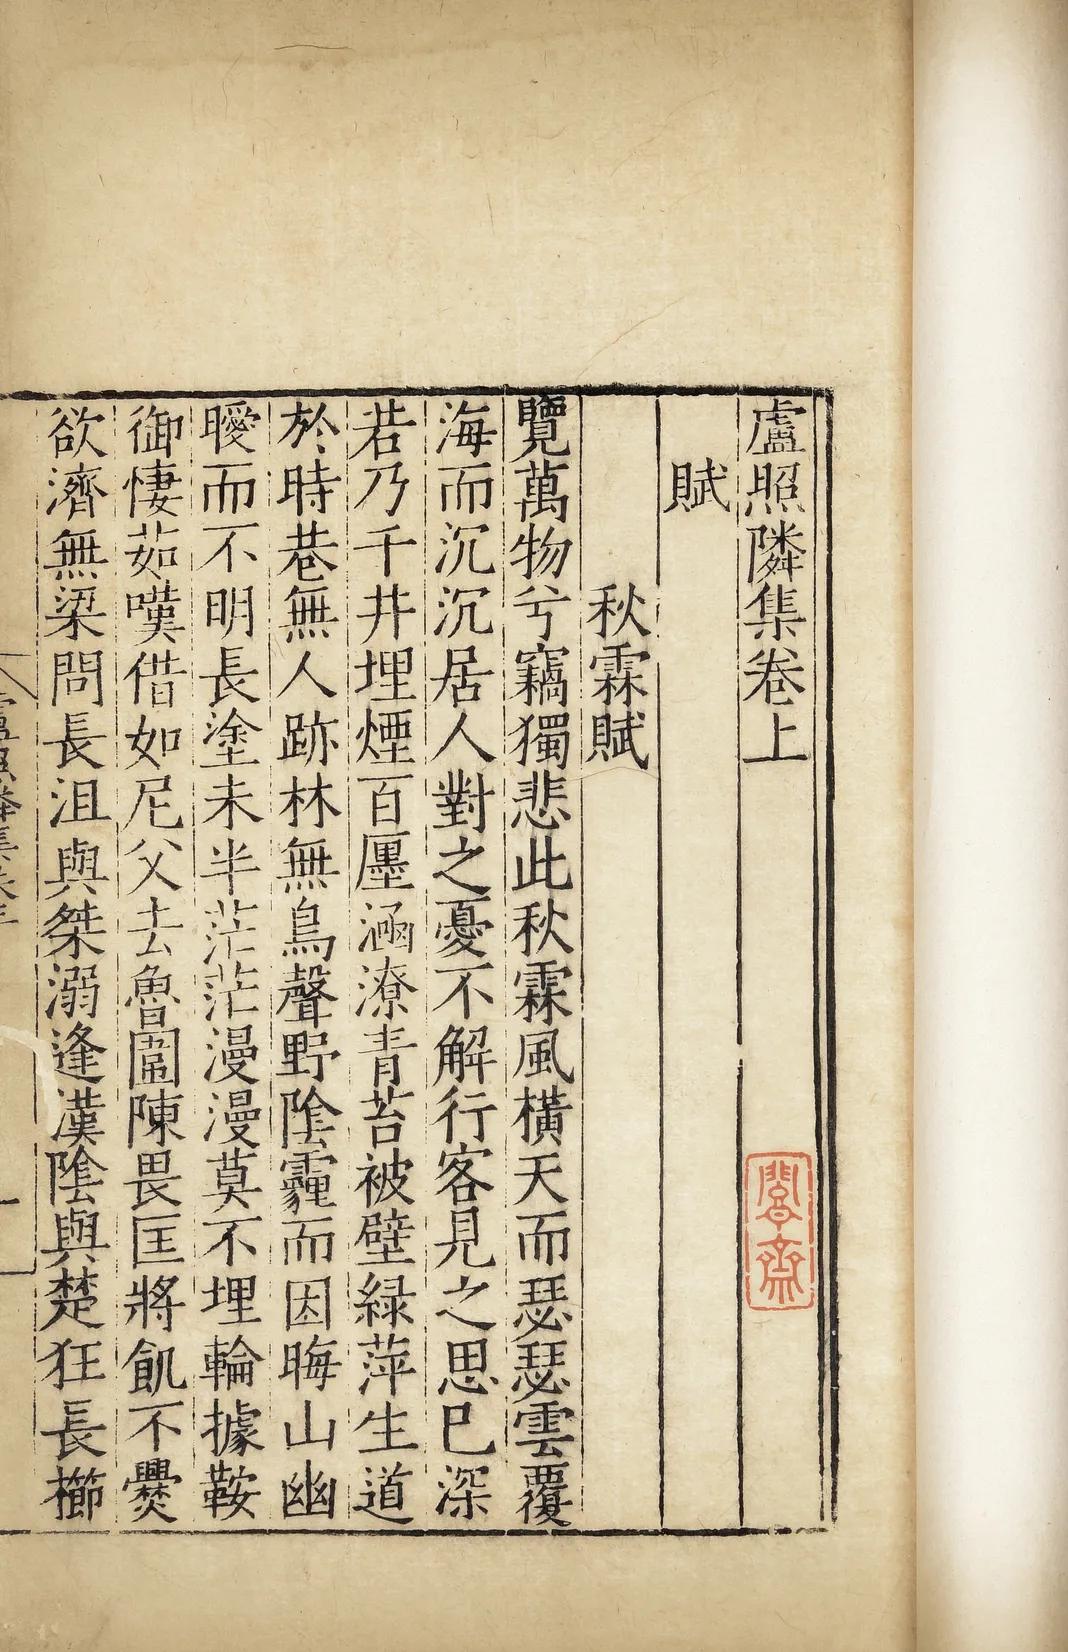 盧照隣集卷上
賦
秋霖賦
覽萬物兮竊獨悲此秋霖風橫天而瑟瑟雲覆
海而沉沉居人對之憂不解行客見之思已深
若乃千井埋煙百廛涵潦青苔被壁綠萍生道
於時巷無人跡林無鳥聲野陰霾而因晦山幽
曖而不明長塗未半茫茫漫漫莫不埋輪據鞍
御悽茹嘆借如尼父去魯圍陳畏匡將飢不爨
欲濟無梁問長沮與桀溺逢漢陰與楚狂長櫛